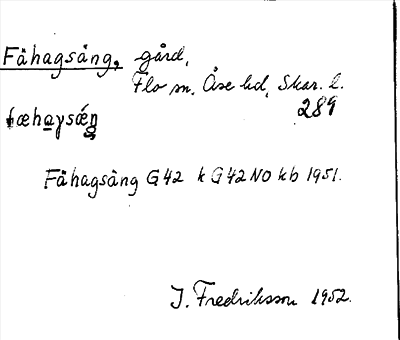 Fähagsäng, gård,
Flo sn. Åse hd, Skar. l.
289
fæhaγsǽŋ
Fähagsäng G42 k G42NO kb 1951.
J. Fredriksson 1952.